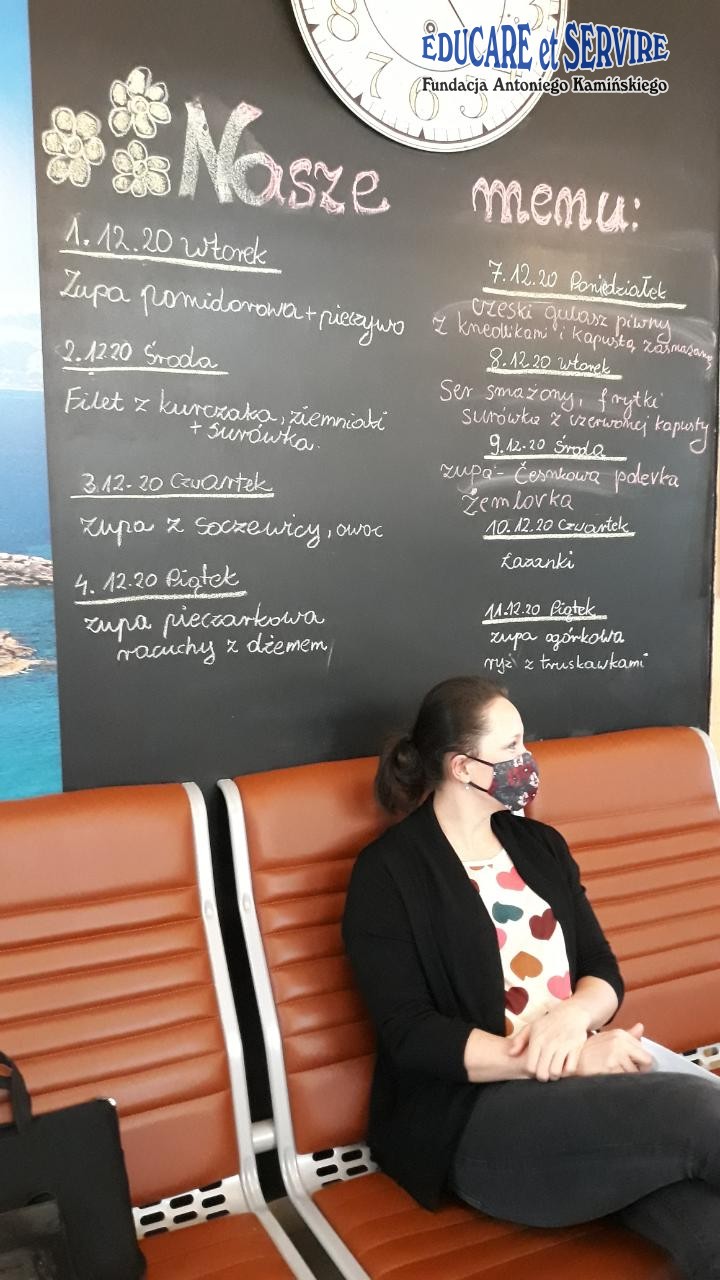 EDUCARE et SERVIRE
Fundacja Antoniego Kamińskiego
8 7 6 5
Nasze menu:
1. 12.20 wtorek
Zupa pomidorowa + pieczywo
2.12.20 Środa
Filet z kurczaka, ziemniaki
+ surówka.
3.12.20 Czwartek
zupa z soczewicy, owoc
4. 12.20 Piątek
zupa pieczarkowa
racuchy z dżemem
7.12.20 Poniedziałek
czeski gulasz piwny
z knedlikami i kapustą zasmażaną
8.12.20 wtorek
Ser smażony, frytki
surówka z czerwonej kapusty
9.12.20 Środa
zupa - Česnkova polevka
Žemlovka
10.12.20 Czwartek
Łazanki
11.12.20 Piątek
zupa ogórkowa
ryż z truskawkami